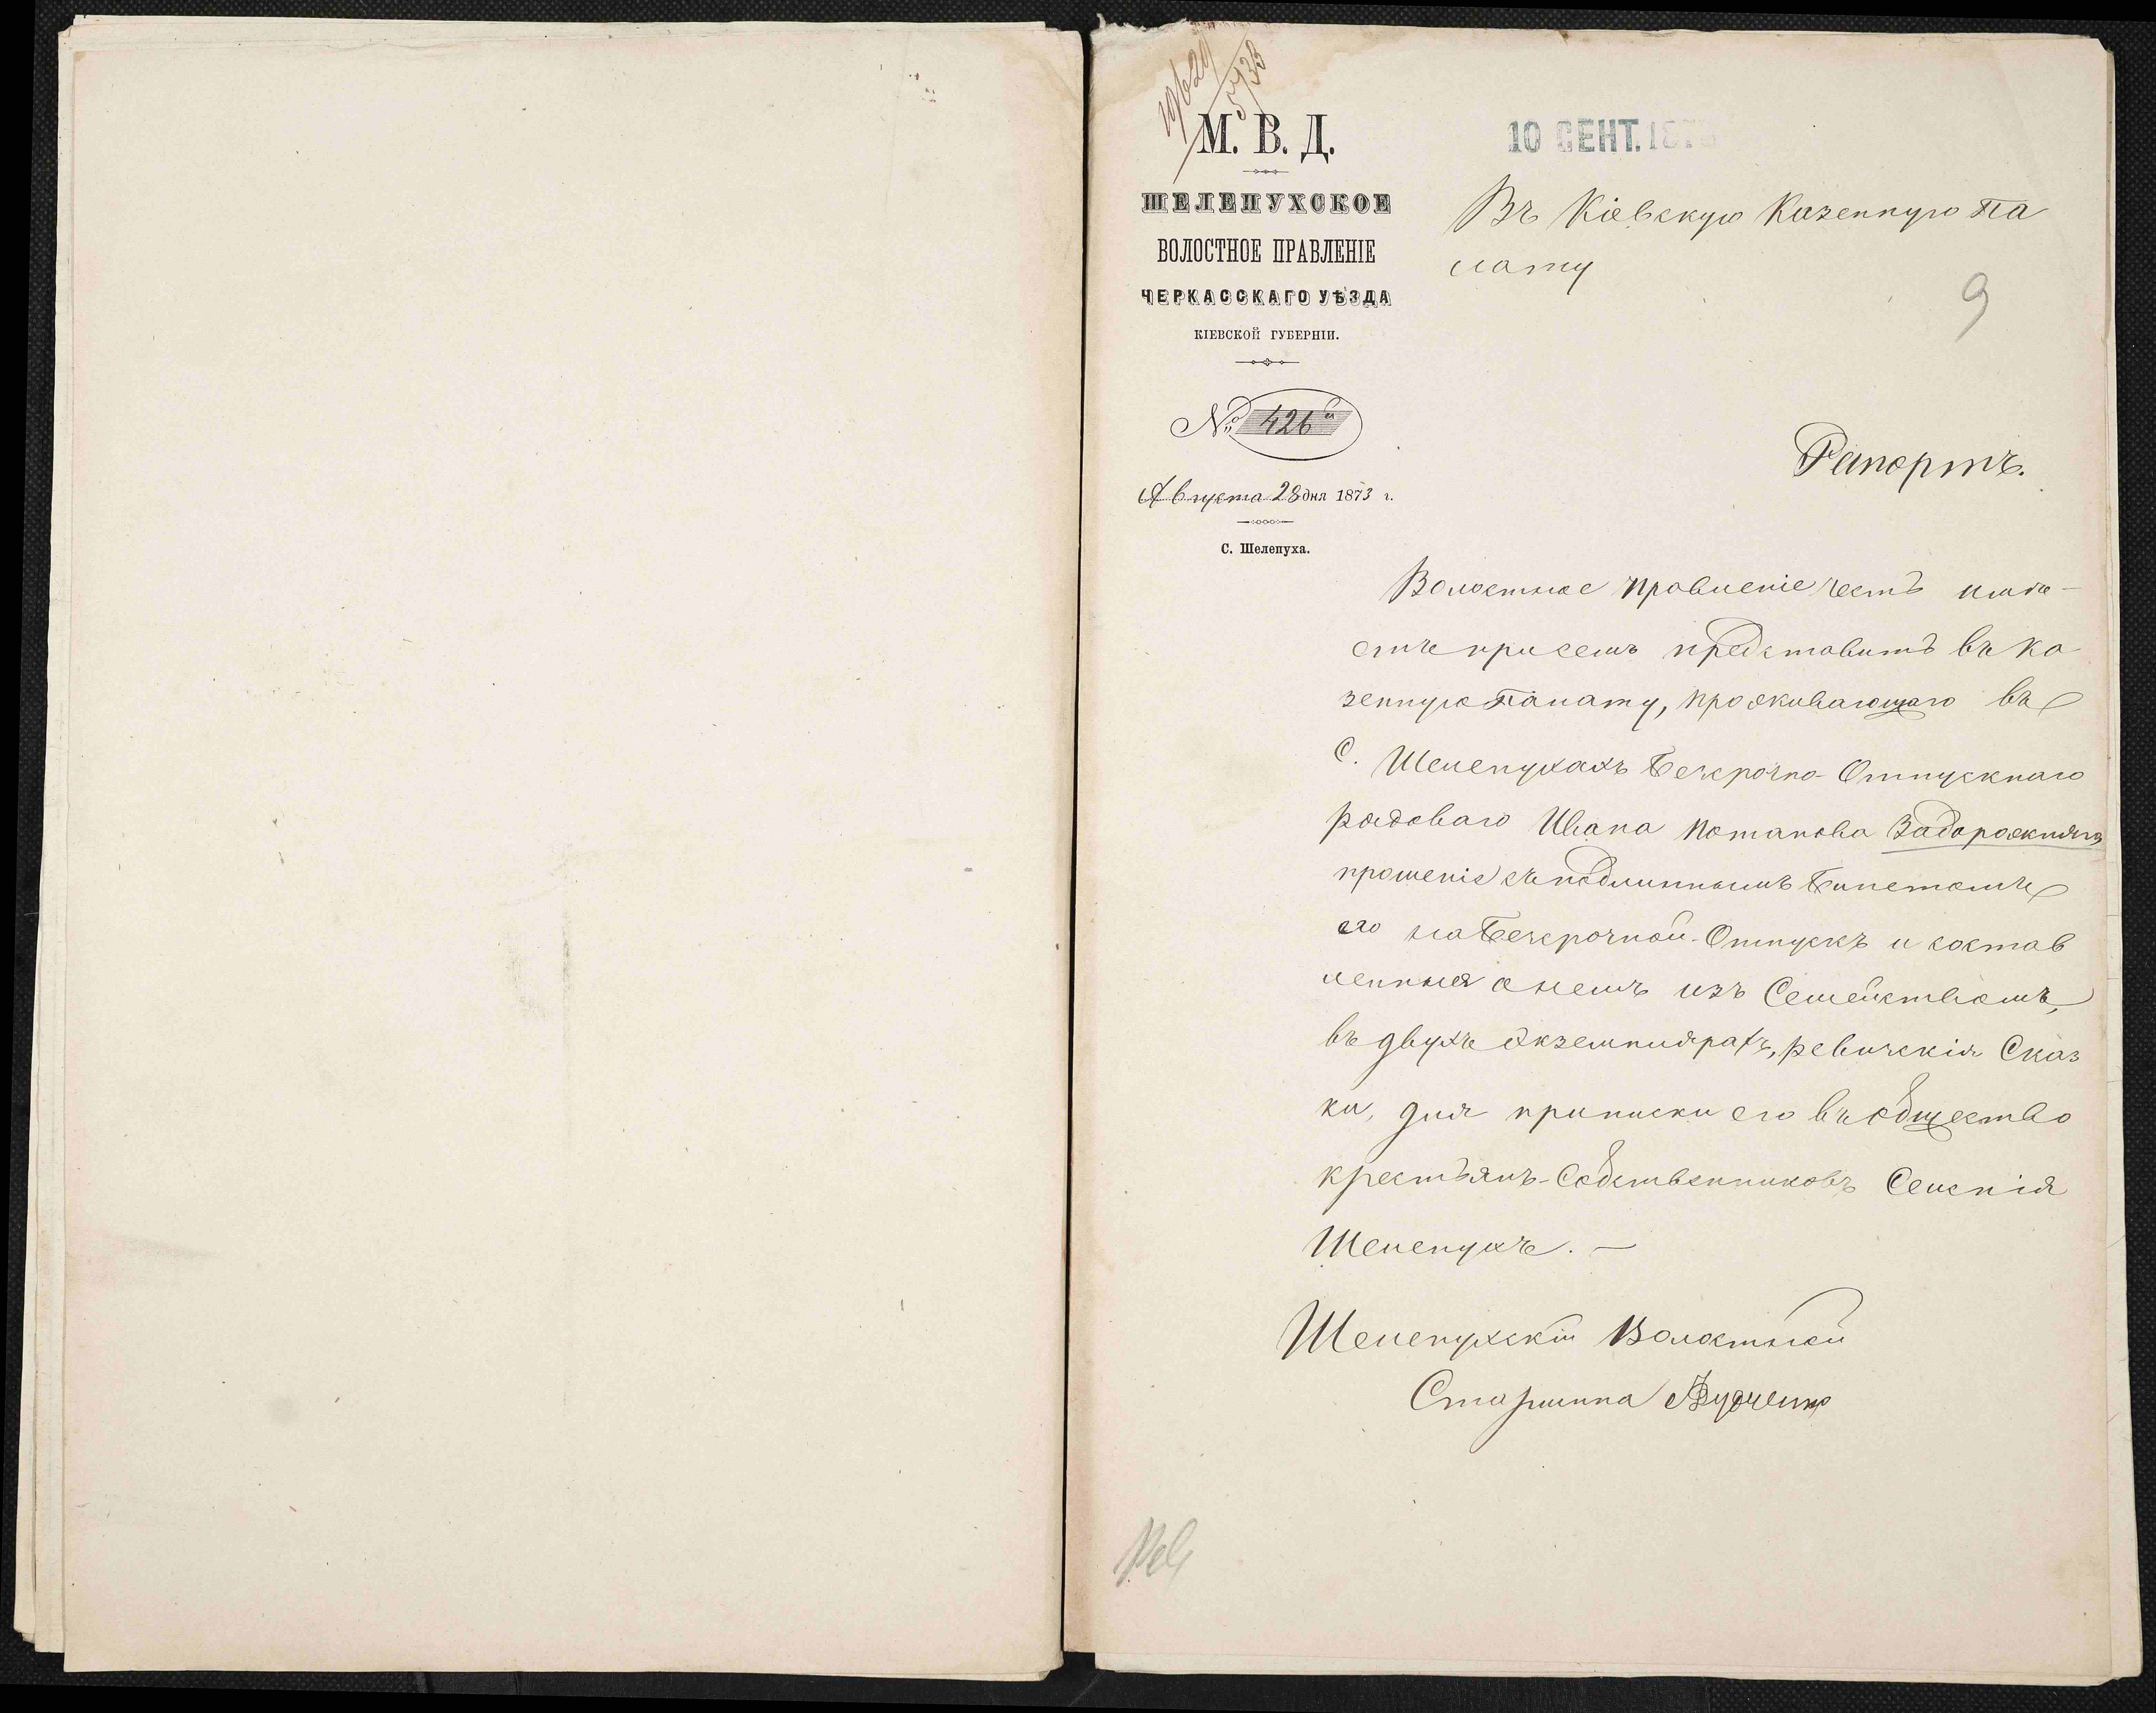 19620
5733
М. В. Д.
ШЕЛЕПУХСКОЕ
ВОЛОСТНОЕ ПРАВЛЕНІЕ
ЧЕРКАССКАГО УѢЗДА
КІЕВСКОЙ ГУБЕРНІИ.
№ 426
Августа 28 дня 1873 г.
С. Шелепуха.
10 СЕНТ. 187
Въ Кіевскую Казенную Па
лату
9
Рапортъ.
Волостное правленіе честь имѣ-
етъ при семъ представить въ Ка
зенную Палату, проживающаго въ
С. Шелепухахъ Безсрочно-Отпускнаго
рядоваго Ивана Потапова Задорожняго
прошеніе съ подлиннымъ билетомъ
его на Безсрочной-Отпускъ и состав
ленныя о немъ изъ Семействомъ,
въ двухъ экземплярахъ, ревизскія Сказ
ки, для приписки его въ общество
крестьянъ-Собственниковъ Селенія
Шелепухъ. —
Шелепухскій Волостной
Старшина